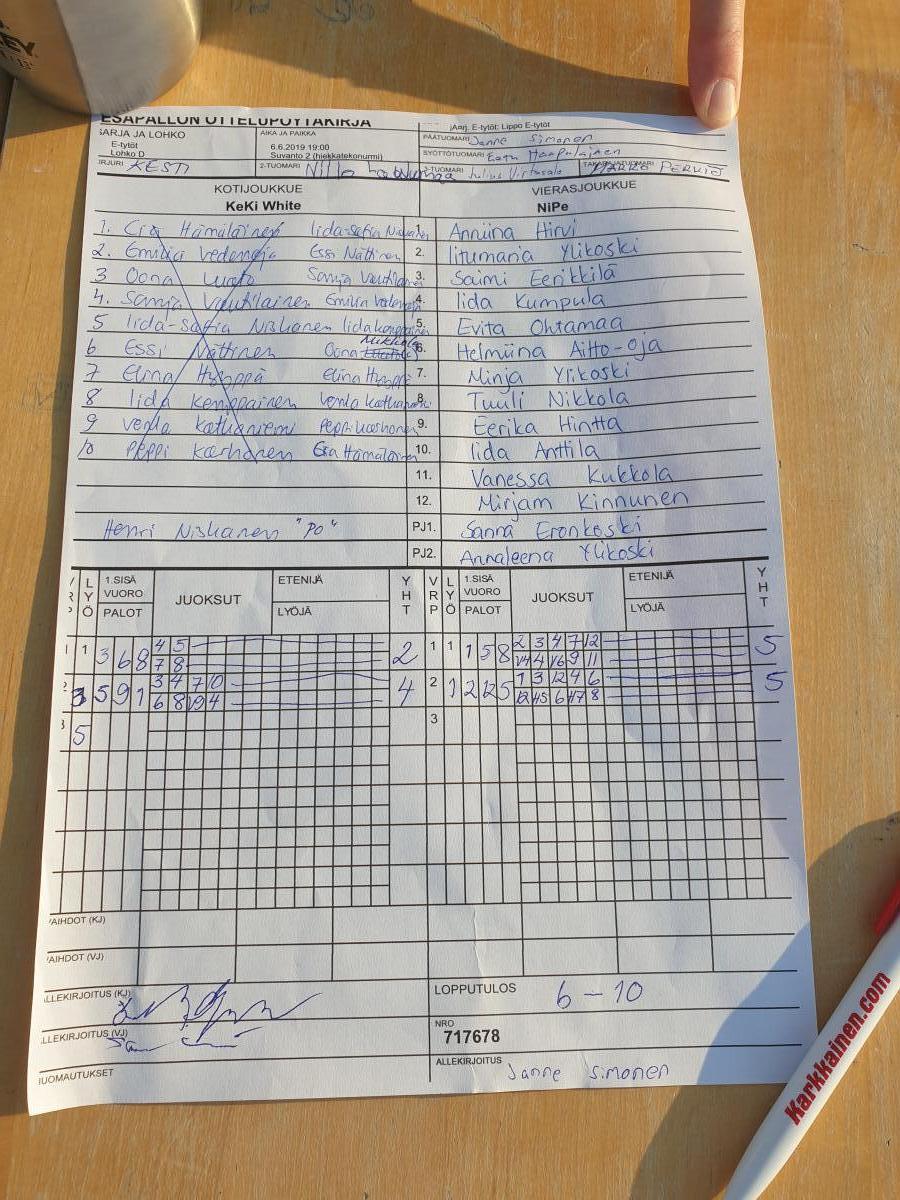 EY
ESÄPALLON OTTELUPÖYTÄKIRJA
SARJA JA LOHKO
E-tytöt
Lohko D
AIKA JA PAIKKA
6.6.2019 19:00
Suvanto 2 (hiekkatekonurmi)
jAarj. E-tytöt: Lippo E-tytöt
PÄÄTUOMARI Janne Simonen
SYÖTTÖTUOMARI
IRJURI KESTI
2-TUOMARI
3-TUOMARI Julius Virtasalo
TAKARAJATUOMARI
KOTIJOUKKUE
KeKi White
VIERASJOUKKUE
NiPe
1. Hämäläinen Iida-Sofia Niskanen 1. Anniina Hirvi
2. Emilia Vedenoja Essi Nättinen 2. Iitumaria Ylikoski
3 Oona Sanja Vautilainen 3. Saimi Eerikkilä
4. Sanja Vautilainen Emilia Vedenoja 4. Iida Kumpula
5 Iida-Sofia Niskanen Iida Kemppainen 5. Evita Ohtamaa
6 Essi Nättinen Oona Mikkola 6. Helmiina Aitto-oja
7 Elina Hyyppä Elina Hyyppä 7. Minja Ylikoski
8 Iida Kemppainen Venla Kathaniemi 8. Tuuli Nikkola
9 Venla Kathaniemi Peppi Karhonen 9. Eerika Hintta
10 Peppi Karhonen Hämäläinen 10. Iida Anttila
11. Vanessa Kukkola
12. Mirjam Kinnunen
Henri Niskanen "PO" PJ1. Sanna Eronkoski
PJ2. Annaleena Ylikoski
V R P
L Y Ö
1.SISÄ VUORO
PALOT
JUOKSUT
ETENIJÄ
LYÖJÄ
Y H T
V R P
L Y Ö
1.SISÄ VUORO
PALOT
JUOKSUT
ETENIJÄ
LYÖJÄ
Y H T
1 1 3 6 8 4 5 2 1 1 1 5 8 2 3 4 7 12 5
7 8 9 11
2 3 5 9 1 3 4 7 10 4 2 1 2 12 5 1 3 12 4 6 5
6 8 4 8
3 5 3
VAIHDOT (KJ)
VAIHDOT (VJ)
ALLEKIRJOITUS (KJ)
LOPPUTULOS 6 – 10
ALLEKIRJOITUS (VJ)
NRO
717678
HUOMAUTUKSET
ALLEKIRJOITUS
Janne Simonen
Karkkainen.com